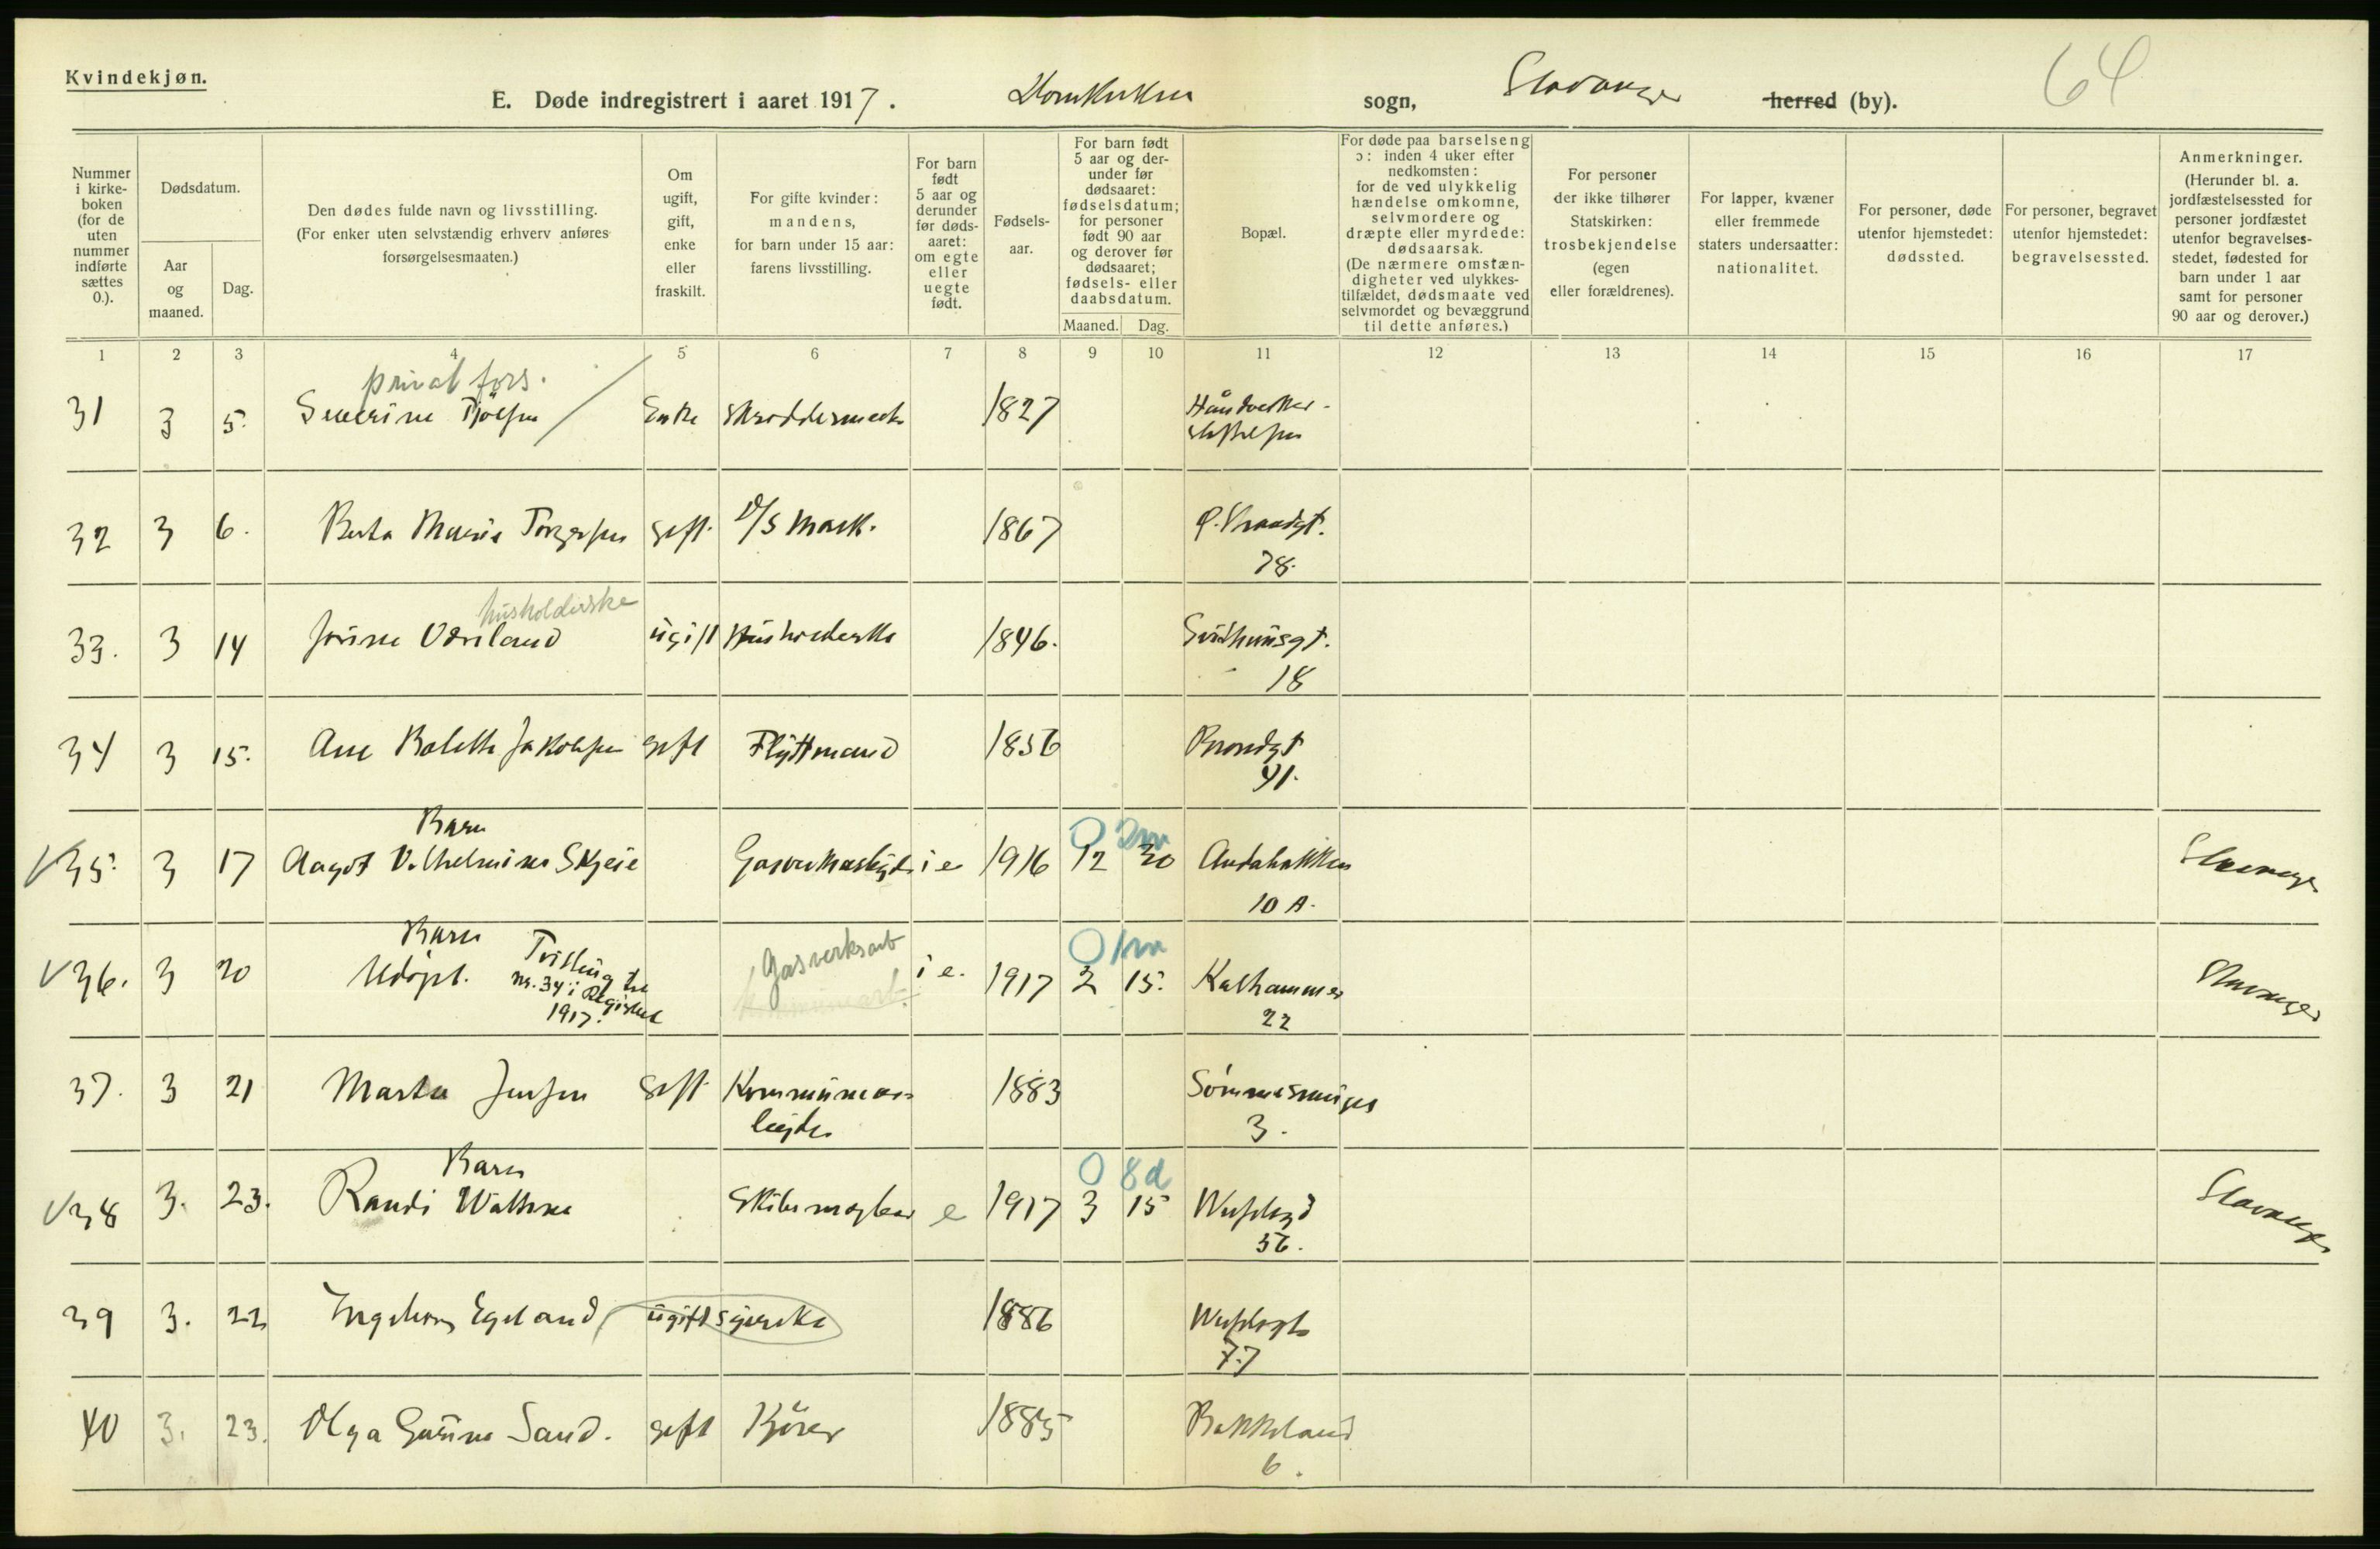 Kvindekjøn.
E. Døde indregistrert i aaret 1917. Domkirken sogn, Stavanger herred (by). 64
Nummer i kirkeboken (for de uten nummer indførte sættes 0.).
Dødsdatum.
Aar og maaned.
Dag.
Den dødes fulde navn og livsstilling.
(For enker uten selvstændig erhverv anføres forsørgelsesmaaten.)
Om ugift, gift, enke eller fraskilt.
For gifte kvinder: mandens, for barn under 15 aar: farens livsstilling.
For barn født 5 aar og derunder før dødsaaret: om egte eller uegte født.
Fødselsaar.
For barn født 5 aar og derunder før dødsaaret: fødselsdatum; for personer født 90 aar og derover før dødsaaret; fødsels- eller daabsdatum.
Maaned. Dag.
Bopæl.
For døde paa barselseng ɔ: inden 4 uker efter nedkomsten: for de ved ulykkelig hændelse omkomne, selvmordere og dræpte eller myrdede: dødsaarsak.
(De nærmere omstændigheter ved ulykkestilfældet, dødsmaate ved selvmordet og bevæggrund til dette anføres.)
For personer der ikke tilhører Statskirken: trosbekjendelse (egen eller forældrenes).
For lapper, kvæner eller fremmede staters undersaatter: nationalitet.
For personer, døde utenfor hjemstedet: dødssted.
For personer, begravet utenfor hjemstedet: begravelsessted.
Anmerkninger.
(Herunder bl. a. jordfæstelsessted for personer jordfæstet utenfor begravelsesstedet, fødested for barn under 1 aar samt for personer 90 aar og derover.)
1 2 3 4 5 6 7 8 9 10 11 12 13 14 15 16 17
privat fors.
31 3 5. Severine Enke 1827
32 3 6. Berta Marie Torgersen gift. D/S Mask. 1867 Ø. Strandgt.
78.
husholderske
33. 3 14 ugift Husholderske 1846. Svithunsgt.
18
34 3 15. Ane Bolette Jakobsen gift Flyttmand 1856
41.
Barn 0 2m
V 35. 3 17 Aagot Vilhelmine Skjeie i e 1916 12 30 Stavanger
10 A.
Barn Gasverksarb 0 1m
V 36. 3 20 Udøpt. Tvilling til nr. 34 i Registret 1917. i e. 1917 2 15. Kalhammer Stavanger
22
37. 3 21 Marta Jensen gift Kommunear=
beider 1883
3.
Barn 0 8d
V 38 3. 23. Randi e 1917 3 15 Stavanger
56.
39 3. 22 Ingeborg Egeland ugift syerske 1886
77
40 3. 23. Olga Gurine Sand. gift Kjører 1885 Bakkeland
6.